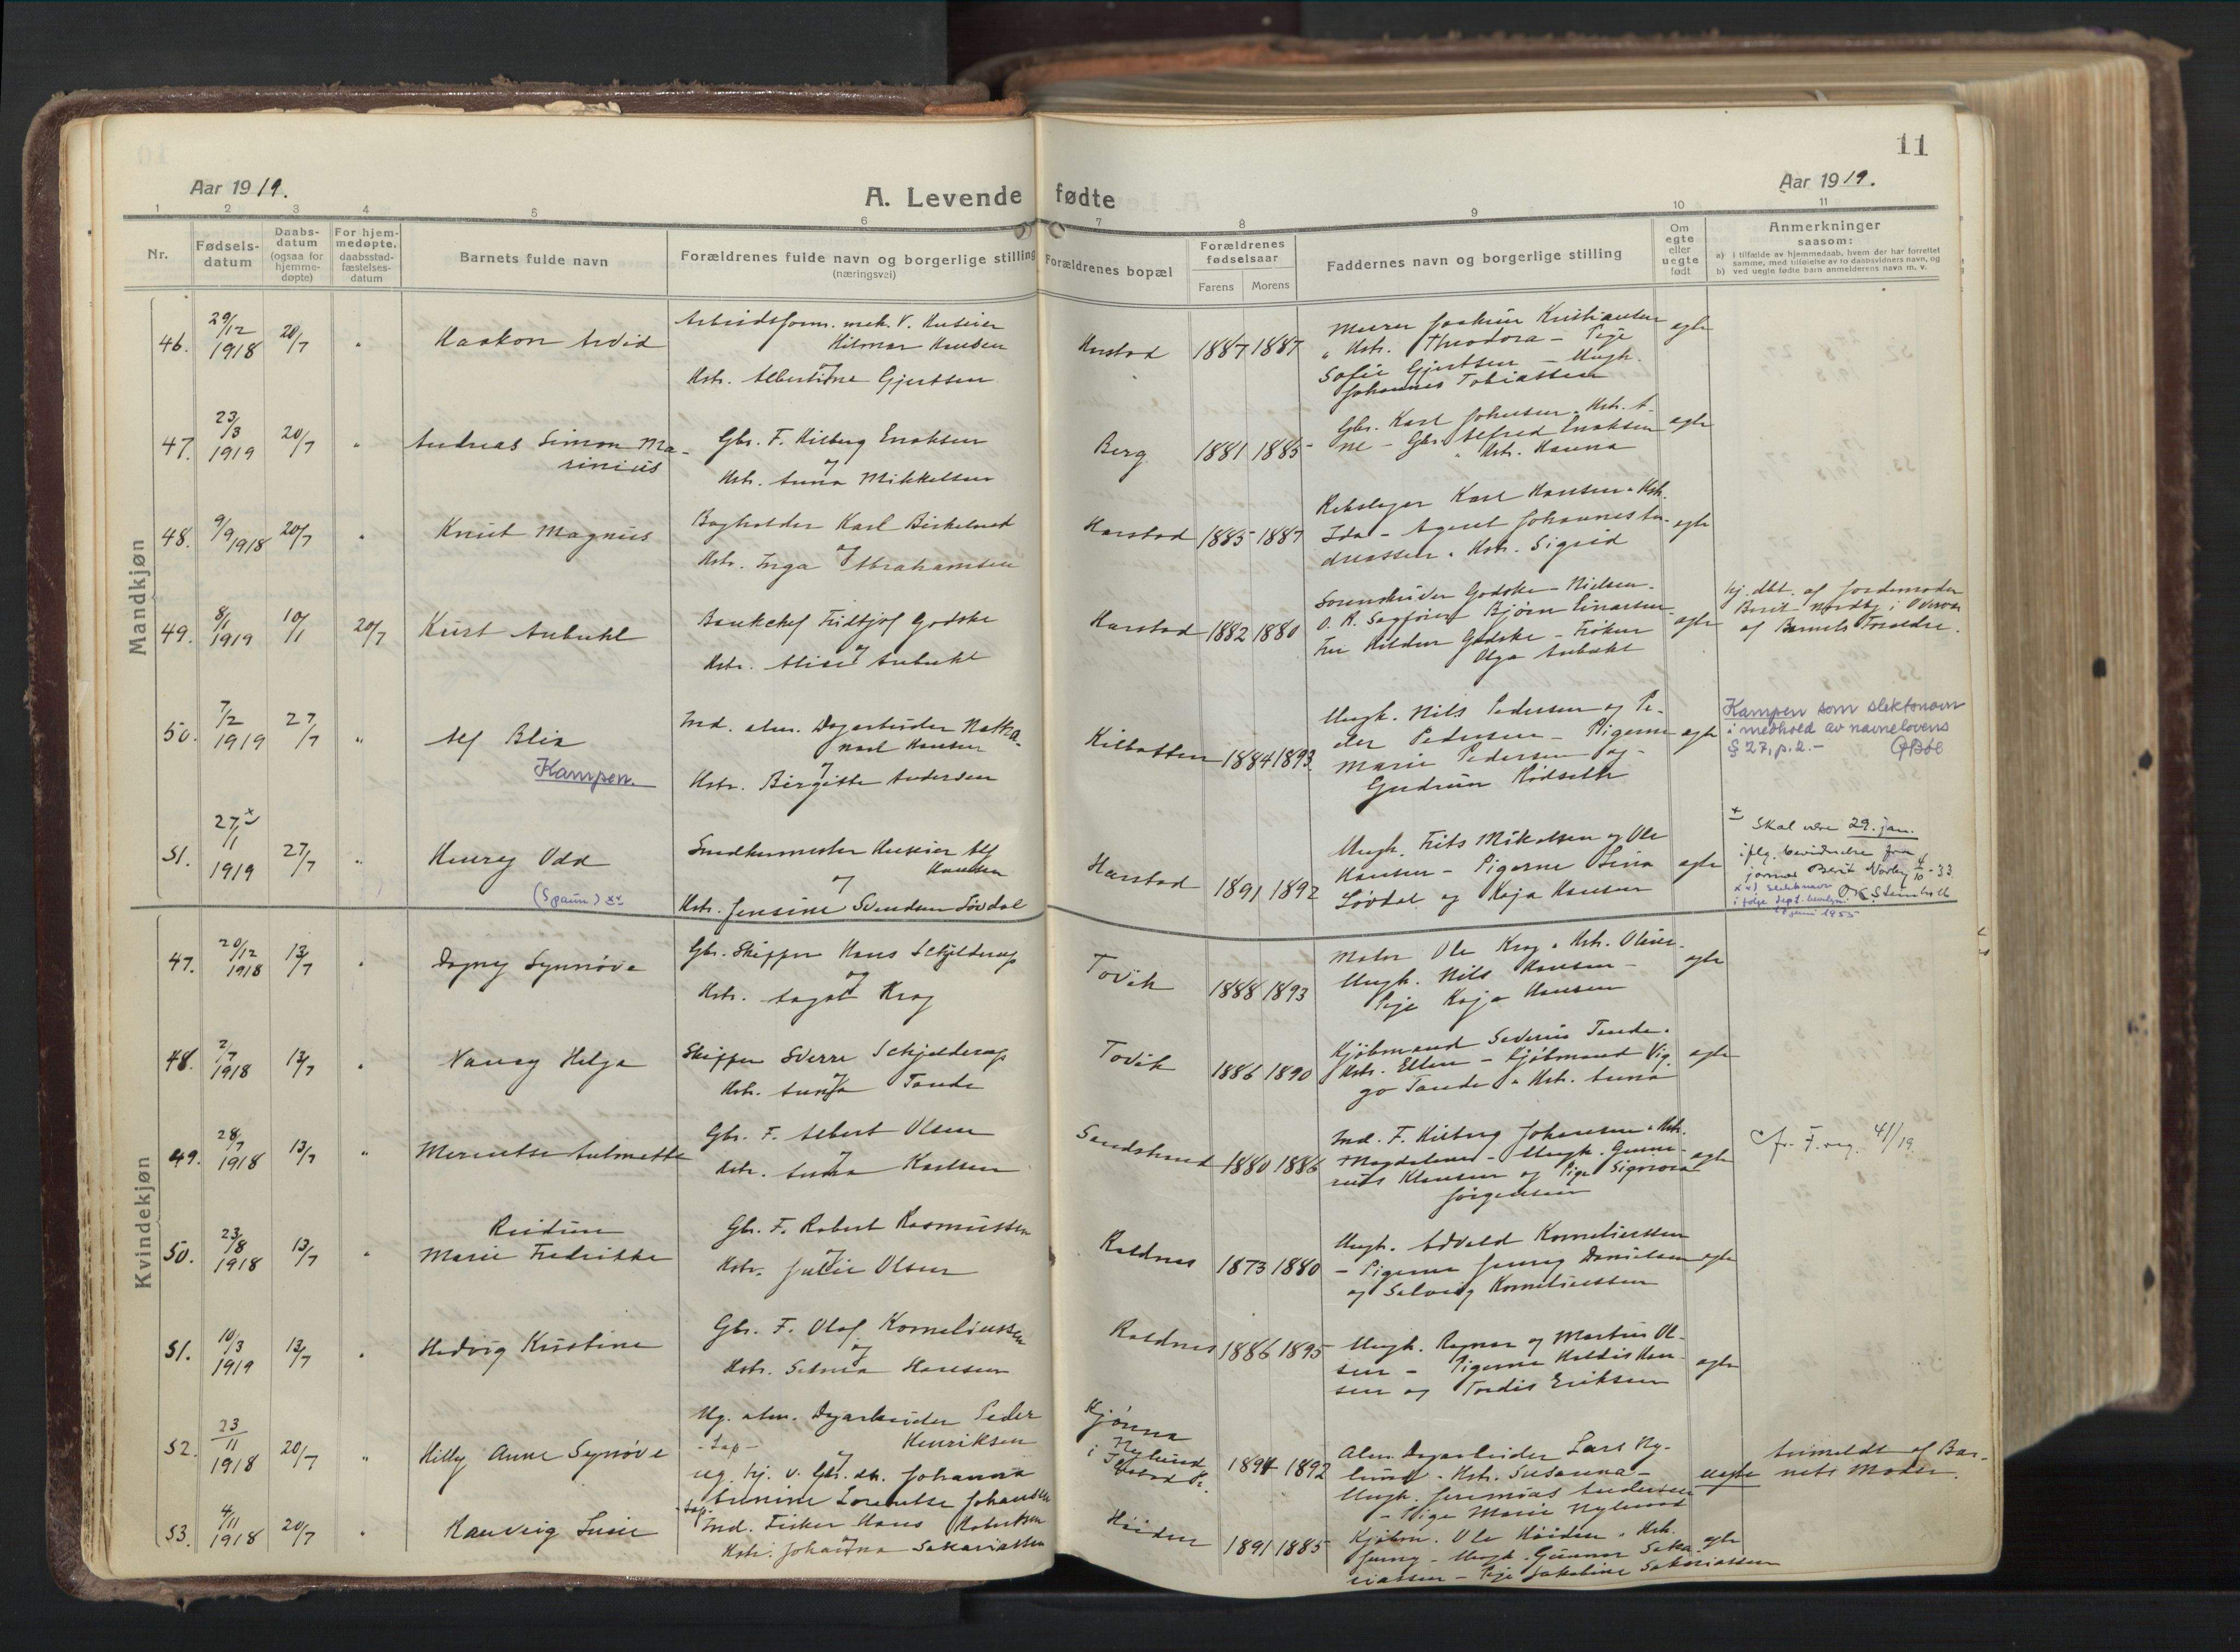 11
Aar 1919.
A. Levende fødte
Aar 1919.
1 2 3 4 5 6 7 8 9 10 11
Nr.
Fødsels-
datum
Daabs-
datum
(ogsaa for
hjemme-
døpte)
For hjem-
medøpte,
daabsstad-
fæstelses-
datum
Barnets fulde navn
Forældrenes fulde navn og borgerlige stilling
(næringsvei)
Forældrenes bopæl
Forældrenes
fødselsaar
Farens Morens
Faddernes navn og borgerlige stilling
Om
egte
eller
uegte
født
Anmerkninger
saasom:
a) i tilfælde av hjemmedaab, hvem der har forrettet
samme, med tilføielse av to daabsvidners navn, og
b) ved uegte fødte barn anmelderens navn m. v.
Mandkjøn
46. 29/12 1918 20/7 "
Haakon Arvid
Arbeidsform. mek. V. Huseier
Hilmar Hansen
og
Hstr. Albertine Gjertsen
Harstad 1887 1887
Murer Joakim Kristiansen
" Hstr. Theodora - Pige
Sofie Gjertsen - Ungk.
Johannes Tobiassen
egte
47. 23/3 1919 20/7 "
Andreas Simon Ma-
rinius
Gbr. F. Hilberg Enoksen
og
Hstr. Anna Mikkelsen
Berg 1881 1885
Gbr. Karl Johnsen " Hstr. A-
ne - Gbr. Alfred Enoksen
" Hstr. Hanna
egte
48. 9/9 1918 20/7 "
Knut Magnus
Bogholder Karl Birkelund
og
Hstr. Inga Abrahamsen
Harstad 1885 1887
Karl Hansen " Hstr.
Ida - Agent Johannes An-
dreassen " Hstr. Sigrid
egte
49. 8/1 1919 10/1 20/7
Kurt Aubuhl
Bankchef Fridtjof Godske
og
Hstr. Alise Aubuhl
Harstad 1882 1880
Sorenskriver Godske - Nielsen -
O. R. Sagfører Bjørn Einarsen
Fru Hildur Godske - Frøken
Olga Aubuhl
egte
hj. dbt. af Jordemoder
Berit Nordby i Overvær
af Barnets Forældre.
50. 7/2 1919 27/7 "
Alf Blix
Kampen.
Ind. alm. Dagarbeider Natha-
nael Hansen
og
Hstr. Birgitte Andersen
Kilbotten 1884 1893
Ungk. Nils Pedersen og Pe-
der Pedersen - Pigerne
Marie Pedersen og
Gudrun Hodseth
egte
Kampen som slektsnavn
i medhold av navnelovens
§ 27, p. 2. -
51. 27/1 x 1919 27/7 "
Henry Odd
(Spaun) xx
Huseier Alf
Hansen
og
Hstr. Jensine Svendsen Løvdal
Harstad 1891 1892
Ungk. Frits Mikalsen og Ole
Hansen - Pigerne Lina
Løvdal og Kaja Hansen
egte
x Skal være 29. jan.
iflg. bevidnelse fra
jormor Berit Nordby 4/10-33
xx) slektsnavn
i følge dept. bevilgn.
juni 1955
Kvindekjøn
47. 20/12 1918 13/7 "
Dagny Synnøve
Gbr. Skipper Hans Schjelderup
og
Hstr. Aagot Krog
Tovik 1888 1893
Maler Ole Krog " Hstr. Oline -
Ungk. Nils Hansen -
Pige Kaja Hansen
egte
48. 2/7 1918 13/7 "
Nancy Helga
Skipper Sverre Schjelderup
og
Hstr. Anna Tande
Tovik 1886 1890
Kjøbmand Severin Tande "
Hstr. Ellen - Kjøbmand Vig-
go Tande " Hstr. Anna
egte
49. 28/7 1918 13/7 "
Merentse Antonette
Gbr. F. Albert Olsen
og
Hstr. Anna Karlsen
Sandstrand 1880 1886
Ind. F. Hilberg Johansen " Hstr.
Magdalene - Ungk. Gunne-
rius Klausen og Pige Signora
Jørgensen
egte
cfr. F. reg. 41/19.
50. 23/8 1918 13/7 "
Reidun
Marie Fredrikke
Gbr. F. Robert Rasmussen
og
Hstr. Julie Olsen
Roldnes 1873 1880
Ungk. Edvald Korneliussen
- Pigerne Jenny Danielsen
og Solveig Korneliussen
egte
51. 10/3 1919 13/7 "
Hedvig Kristine
Gbr. F. Olaf Korneliussen
og
Hstr. Selma Hansen
Roldnes 1886 1895
Ungk. Ragnar og Martin Ol-
sen - Pigerne Haldis Han-
sen og Tordis Eriksen
egte
52. 23/11 1918 20/7 "
Hilly Anne Synøve
Ug. alm. Dagarbeider Peder
- Lap - Henriksen
og
ug. hj. v. Gbr. dt. Johanna
Antonine Lorentse Johansen
- Lap -
Kjønna
i Nylund
1891 1892
Alm. Dagarbeider Lars Ny-
lund " Hstr. Susanna -
Ungk. Jeremias Andersen
- Pige Marie Nylund
uegte
Anmeldt af Bar-
nets Moder.
53. 4/11 1918 20/7 "
Ranveig Lucie
Ind. Fisker Hans Robertsen
og
Hstr. Johanna Sakariassen
Høiden 1891 1885
Kjøbm. Ole Høiden " Hstr.
Jenny - Ungk. Gunnar Saka-
riassen - Pige Jakobine Sakariassen
egte